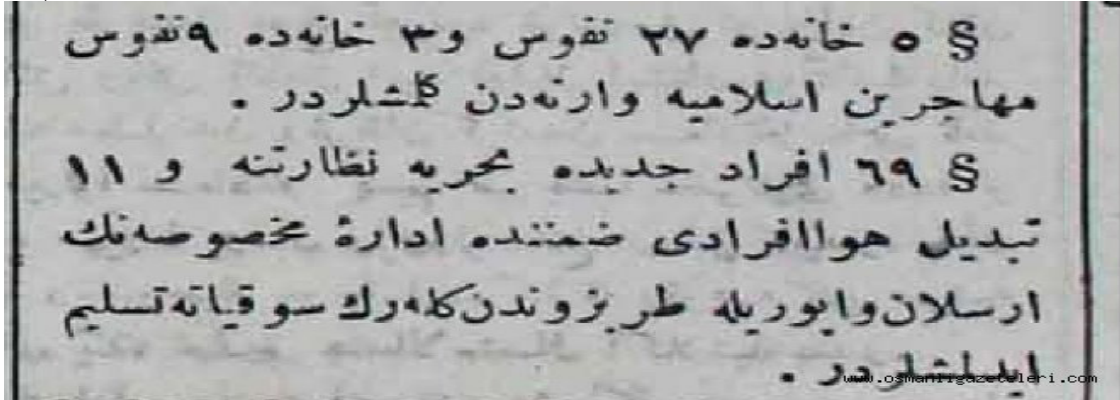 § ٥ خانه‌ده ٢٧ نفوس و٣ خانه‌ده ٩ نفوس
مهاجرین اسلامیه وارنه‌دن كلمشلردر .
§ ٦٩ افراد جدیده بحریه نظارتنه و ١١
تبدیل هوا افرادی ضمننده ادارۀ مخصوصه‌نك
ارسلان واپوریله طربزوندن كله‌رك سوقیاته تسلیم
ایدلمشلردر .
www.osmanligazeteleri.com